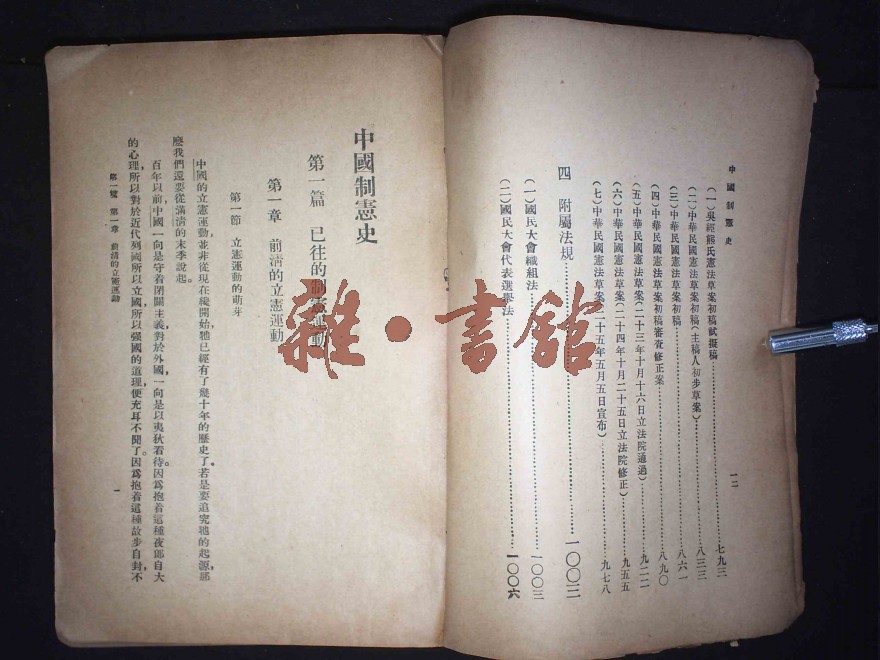 中國制憲史
一二
(一)吳經熊氏憲法草案初稿試擬稿…………七九三
(二)中華民國憲法草案初稿(主稿人初步草案)…………八三三
(三)中華民國憲法草案初稿…………八六一
(四)中華民國憲法草案初稿審查修正案…………八九〇
(五)中華民國憲法草案(二十三年十月十六日立法院通過)…………九二二
(六)中華民國憲法草案(二十四年十月二十五日立法院修正)…………九五五
(七)中華民國憲法草案(二十五年五月五日宣布)…………九七八
四 附屬法規…………一〇〇三
(一)國民大會組織法…………一〇〇三
(二)國民大會代表選舉法…………一〇〇六
中國制憲史
第一篇 已往的制憲運動
第一章 前清的立憲運動
第一節 立憲運動的萌芽
中國的立憲運動,並非從現在纔開始,牠已經有了幾十年的歷史了。若是要追究牠的起源,那
麼我們還要從滿清的末季說起。
百年以前,中國一向是守着閉關主義,對於外國一向是以夷狄看待。因爲抱着這種夜郎自大
的心理,所以對於近代列國所以立國,所以强國的道理,便充耳不聞了。因爲抱着這種故步自封,不
第一篇 第一章 前清的立憲運動
一
雜·書館